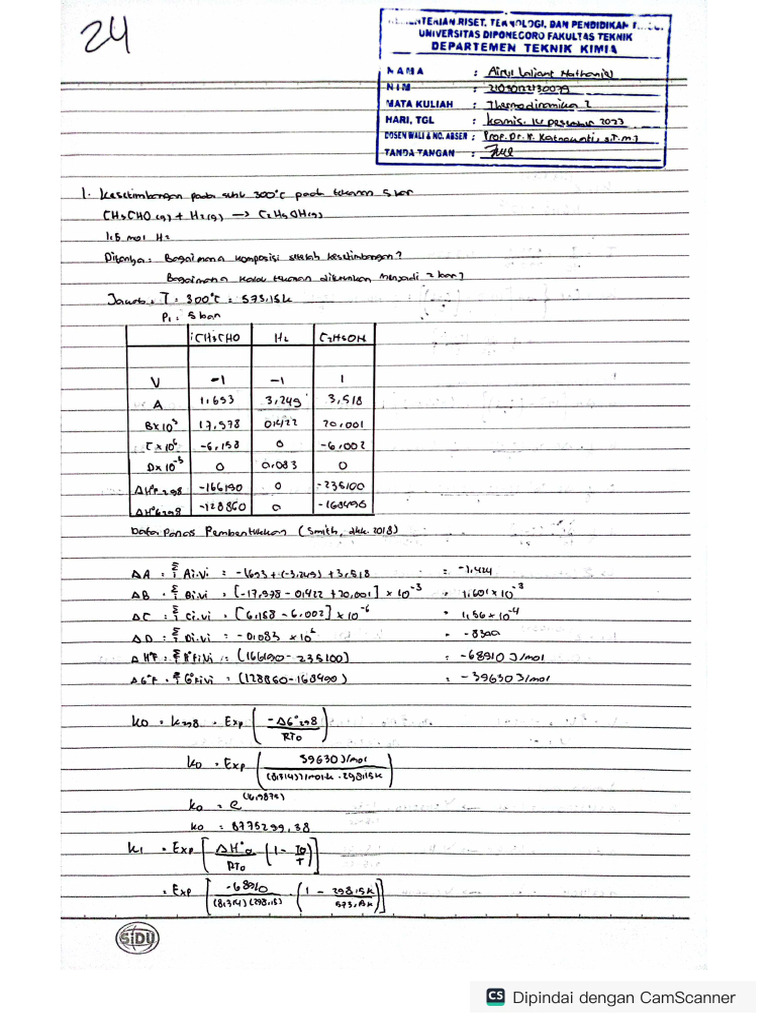 24
KEMENTERIAN RISET, TEKNOLOGI, DAN PENDIDIKAN
UNIVERSITAS DIPONEGORO FAKULTAS TEKNIK
DEPARTEMEN TEKNIK KIMIA
NAMA :
NIM :
MATA KULIAH : Thermodinamika 2
HARI, TGL : Kamis, 14 Desember 2023
DOSEN WALI & NO. ABSEN : Prof. Dr.
TANDA TANGAN :
1. Kesetimbangan pada suhu 300°C pada tekanan 5 bar
CH3CHO (g) + H2(g) → C2H5OH(g)
1.5 mol H2
Ditanya : Bagaimana komposisi setelah kesetimbangan?
Bagaimana kalau tekanan diturunkan menjadi 2 bar?
Jawab : T = 300°C = 573.15K
P1 : 5 bar
CH3CHO H2 C2H5OH
V -1 -1 1
A 1,693 3,249 3,518
B×10³ 17,978 0,422 20,001
C×10⁶ -6,158 0 -6,002
D×10⁻⁵ 0 0,083 0
ΔH°F298 -166190 0 -235100
ΔH°G298 -128860 0 -168490
Data Panas Pembentukkan (Smith, dkk. 2018)
ΔA = Σ Ai.Vi = -1693 + (-3,249) + 3,518 = -1,424
ΔB = Σ Bi.Vi = [-17,978 - 0,422 + 20,001] × 10⁻³ = 1,601×10⁻³
ΔC = Σ Ci.Vi = [6,158 - 6,002] × 10⁻⁶ = 1,56×10⁻⁴
ΔD = Σ Di.Vi = -0,083 × 10⁶ = -8300
ΔH°F = Σ H°Fi.Vi = (166190 - 235100) = -68910 J/mol
ΔG°F = Σ G°Fi.Vi = (128860 - 168490) = -39630 J/mol
K0 = K298 = Exp (-ΔG°298 / RT0)
K0 = Exp (39630 J/mol / (8,314 J/mol.K . 298,15K))
K0 = e^(15,9875)
K0 = 8775299,38
K1 = Exp [ΔH°0 / RT0 (1 - T0/T)]
= Exp [-68910 / (8,314)(298,15) . (1 - 298,15K / 573,15K)]
SiDU
CS Dipindai dengan CamScanner